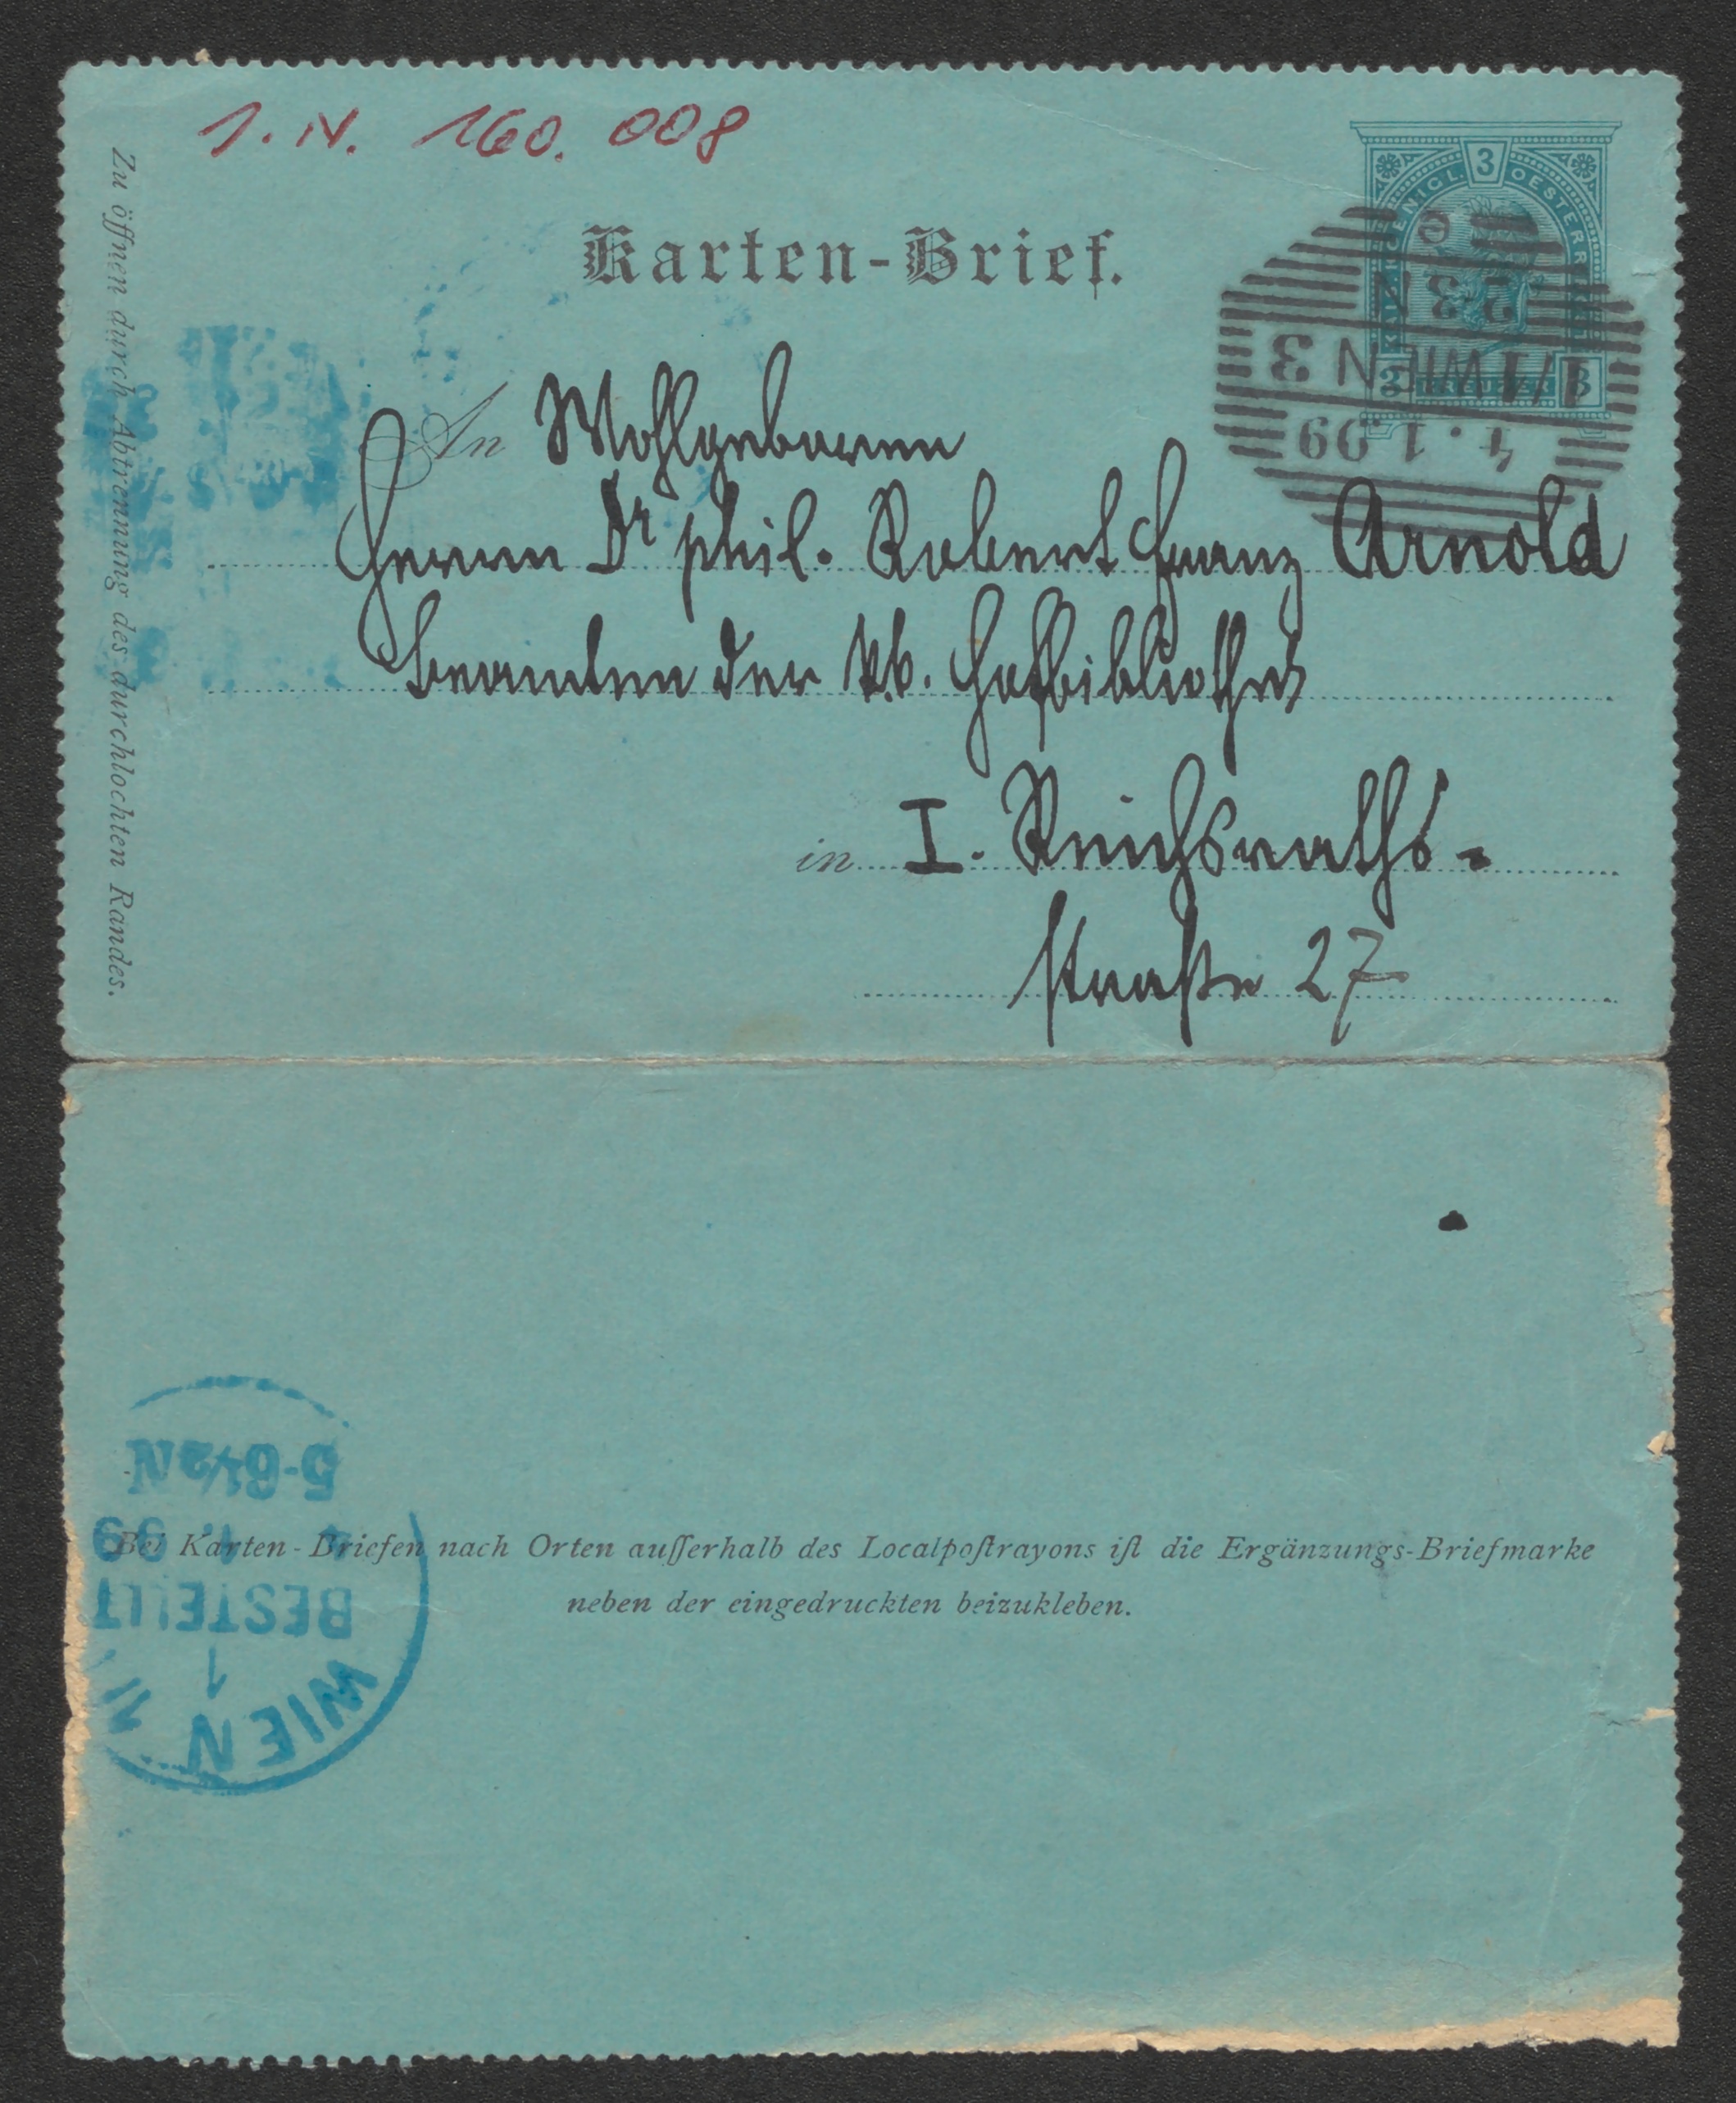 I. N. 160.008
Zu öffnen durch Abtrennung des durchlochten Randes.
Karten-Brief.
3
KREUZER
WIEN
4.1.99
2-3 N
An Wohlgeboren
Herrn Dr phil. Robert Franz Arnold
Beamten der k.k. Hofbibliothek
in I. Reichsraths-
straße 27
Bei Karten-Briefen nach Orten ausserhalb des Localpostrayons ist die Ergänzungs-Briefmarke
neben der eingedruckten beizukleben.
WIEN
1
BESTELLT
5-6½N